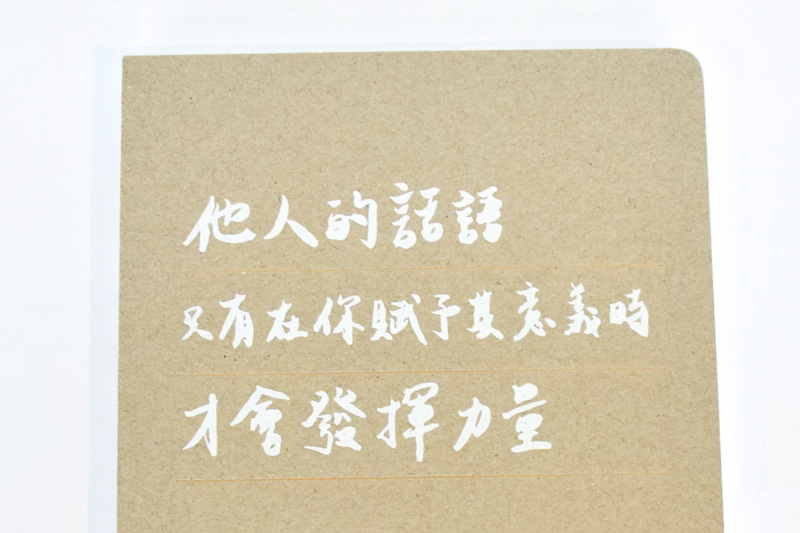 他人的話語
只有在你賦予其意義時
才會發揮力量